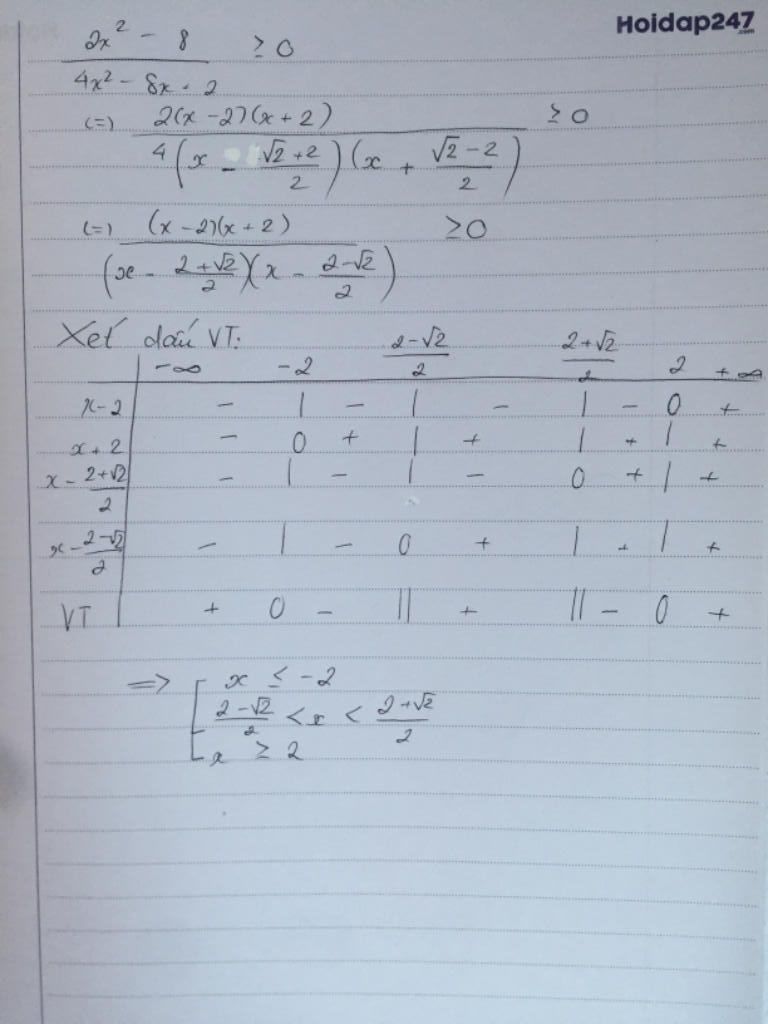 Hoidap247
.com
(2x² - 8)/(4x² - 8x + 2) ≥ 0
(=) 2(x - 2)(x + 2)/(4(x - (√2 + 2)/2)(x + (√2 - 2)/2)) ≥ 0
(=) (x - 2)(x + 2)/((x - (2 + √2)/2)(x - (2 - √2)/2)) ≥ 0
Xét dấu VT:
-∞ -2 (2 - √2)/2 (2 + √2)/2 2 +∞
x - 2 - | - | - | - 0 +
x + 2 - 0 + | + | + | +
x - (2 + √2)/2 - | - | - 0 + | +
x - (2 - √2)/2 - | - 0 + | + | +
VT + 0 - || + || - 0 +
=> [ x ≤ -2
(2 - √2)/2 < x < (2 + √2)/2
x ≥ 2